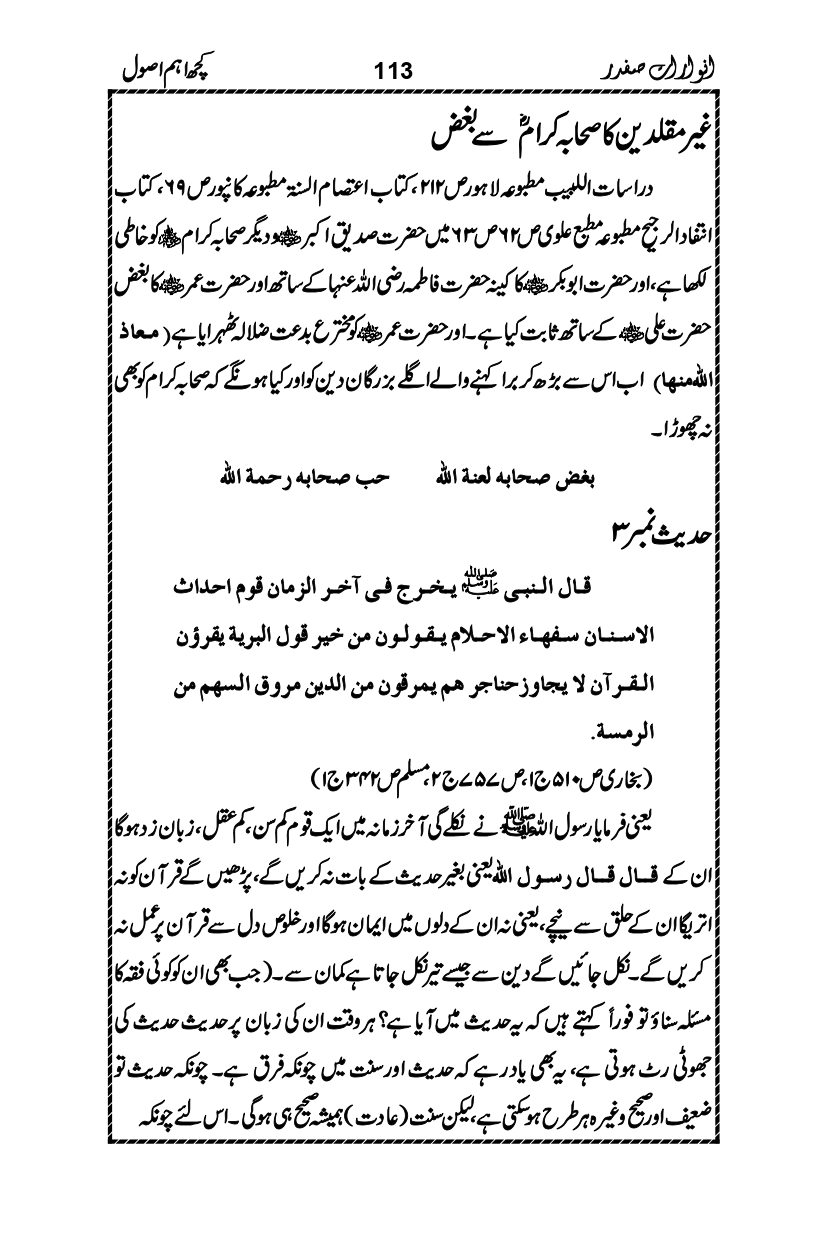 انوارات صفدر 113 کچھ اہم اصول
غیر مقلدین کا صحابہ کرامؓ سے بغض
دراسات اللبیب مطبوعہ لاہور ص ۲۱۲، کتاب اعتصام السنۃ مطبوعہ کانپور ص ۶۹، کتاب
انتقاد الرجیح مطبوعہ مطبع علوی ص ۶۲ ص ۶۳ میں حضرت صدیق اکبر رضی اللہ عنہ و دیگر صحابہ کرام رضی اللہ عنہم کو خاطی
لکھا ہے، اور حضرت ابوبکر رضی اللہ عنہ کا کینہ حضرت فاطمہ رضی اللہ عنہا کے ساتھ اور حضرت عمر رضی اللہ عنہ کا بغض
حضرت علی رضی اللہ عنہ کے ساتھ ثابت کیا ہے۔ اور حضرت عمر رضی اللہ عنہ کو مخترع بدعت ضلالہ ٹھہرایا ہے (معاذ
اللہ منھا) اب اس سے بڑھ کر برا کہنے والے اگلے بزرگان دین کو اور کیا ہونگے کہ صحابہ کرام کو بھی
نہ چھوڑا۔
بغض صحابہ لعنة اللہ حب صحابہ رحمة اللہ
حدیث نمبر ۳
قال النبی ﷺ یخرج فی آخر الزمان قوم احداث
الاسنان سفھاء الاحلام یقولون من خیر قول البریة یقرؤن
القرآن لا یجاوز حناجر ھم یمرقون من الدین مروق السھم من
الرمسة.
(بخاری ص ۵۱۰ ج ۱، ص ۷۵۷ ج ۲، مسلم ص ۳۴۲ ج ۱)
یعنی فرمایا رسول اللہ ﷺ نے نکلے گی آخر زمانہ میں ایک قوم کم سن، کم عقل، زبان زد ہوگا
ان کے قال قال رسول اللہ یعنی بغیر حدیث کے بات نہ کریں گے، پڑھیں گے قرآن کو نہ
اتریگا ان کے حلق سے نیچے، یعنی نہ ان کے دلوں میں ایمان ہوگا اور خلوص دل سے قرآن پر عمل نہ
کریں گے۔ نکل جائیں گے دین سے جیسے تیر نکل جاتا ہے کمان سے۔ (جب بھی ان کو کوئی فقہ کا
مسئلہ سناؤ تو فوراً کہتے ہیں کہ یہ حدیث میں آیا ہے؟ ہر وقت ان کی زبان پر حدیث حدیث کی
جھوٹی رٹ ہوتی ہے، یہ بھی یاد رہے کہ حدیث اور سنت میں چونکہ فرق ہے۔ چونکہ حدیث تو
ضعیف اور صحیح وغیرہ ہر طرح ہو سکتی ہے، لیکن سنت (عادت) ہمیشہ صحیح ہی ہوگی۔ اس لئے چونکہ